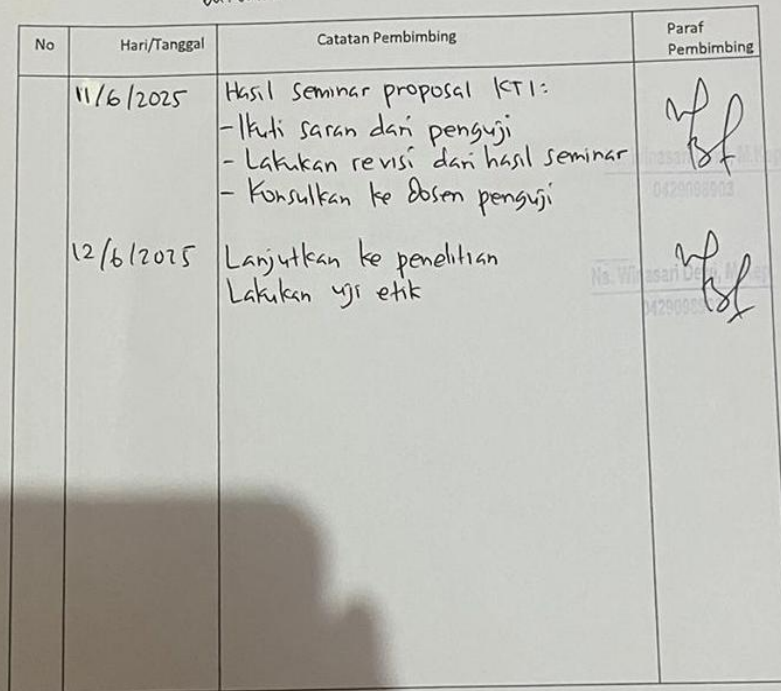 No Hari/Tanggal Catatan Pembimbing Paraf Pembimbing
11/6/2025 Hasil seminar proposal KTI:
- Ikuti saran dari penguji
- Lakukan revisi dari hasil seminar
- Konsulkan ke dosen penguji
12/6/2025 Lanjutkan ke penelitian
Lakukan uji etik